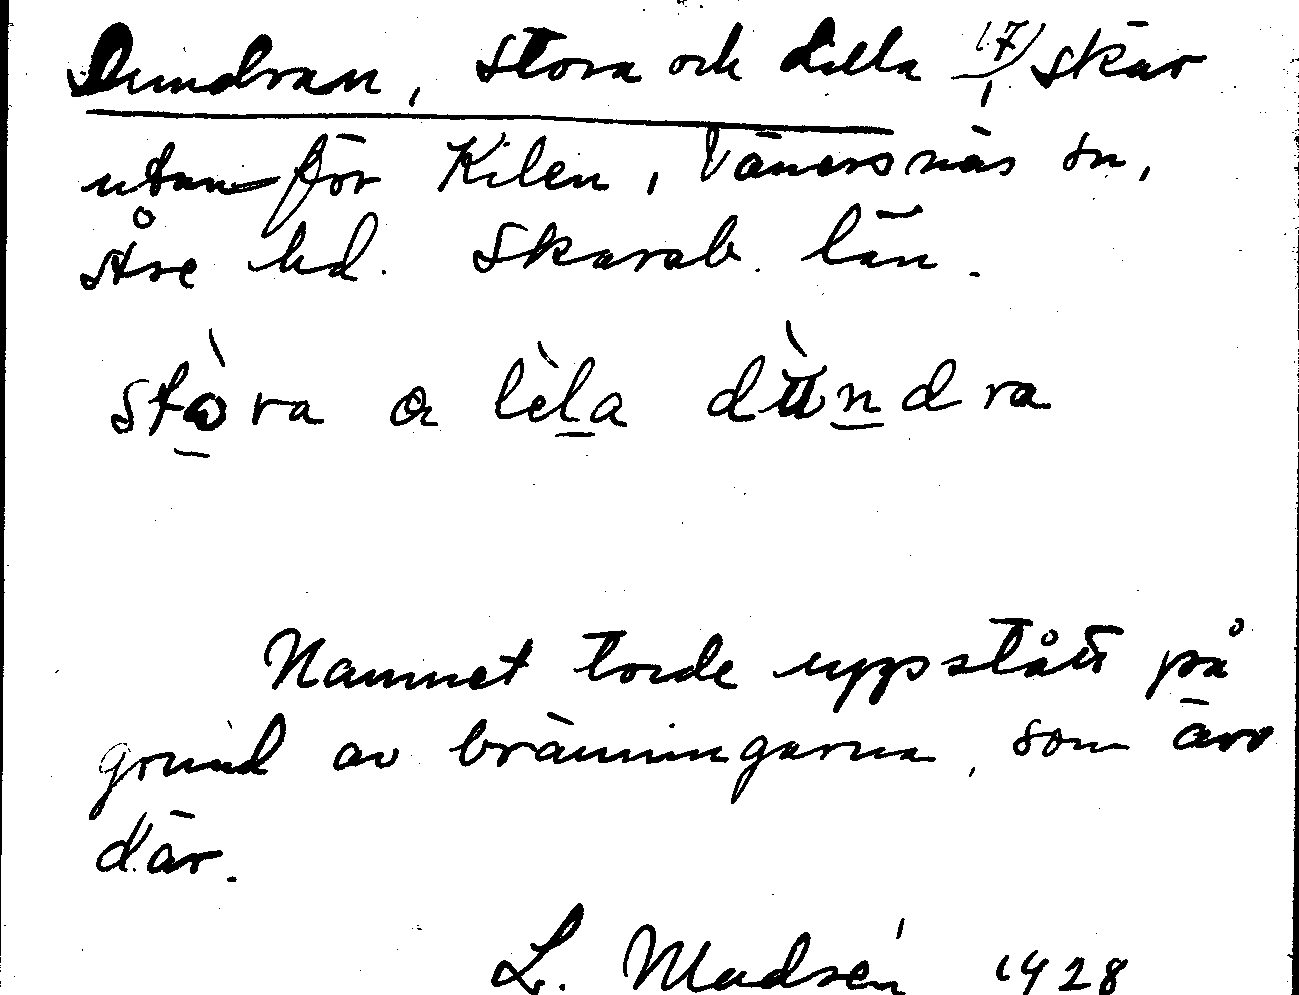 Dundran, Stora och Lilla (7), skär
utanför Kilen, Vänersnäs sn,
Åse hd. Skarab. län.
stòra å lèla dùndra
Namnet torde uppstått på
grund av bränningarna, som äro
där.
L. Madsén 1928